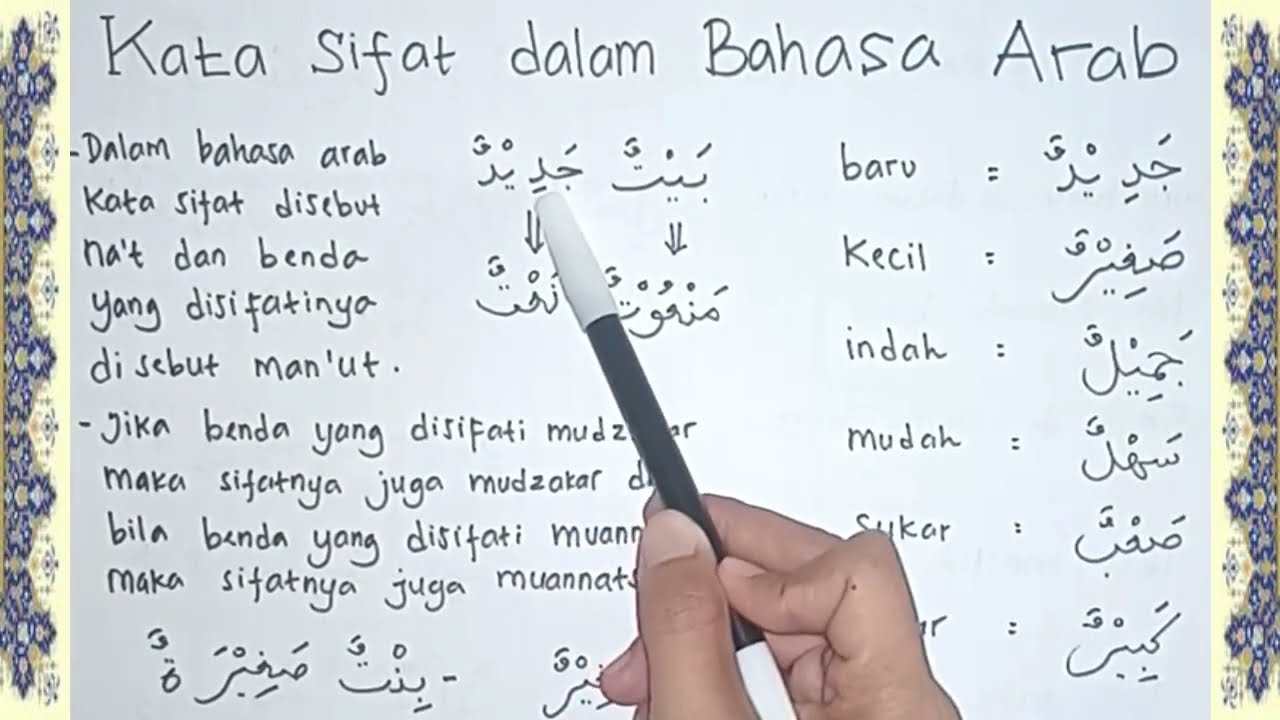 Kata Sifat dalam Bahasa Arab
-Dalam bahasa arab
Kata sifat disebut
na't dan benda
yang disifatinya
disebut man'ut.
بَيْتٌ جَدِيْدٌ
⇓ ⇓
مَنْعُوْتٌ نَعْتٌ
- Jika benda yang disifati
maka sifatnya juga mudzakar
bila benda yang disifati
maka sifatnya juga muannats
- بِنْتٌ صَغِيْرَةٌ
baru = جَدِيْدٌ
Kecil = صَغِيْرٌ
indah = جَمِيْلٌ
mudah = سَهْلٌ
sukar = صَعْبٌ
= كَبِيْرٌ